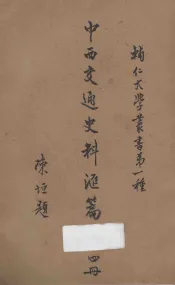 輔仁大學叢書第一種
中西交通史料匯篇
四冊
陳垣題